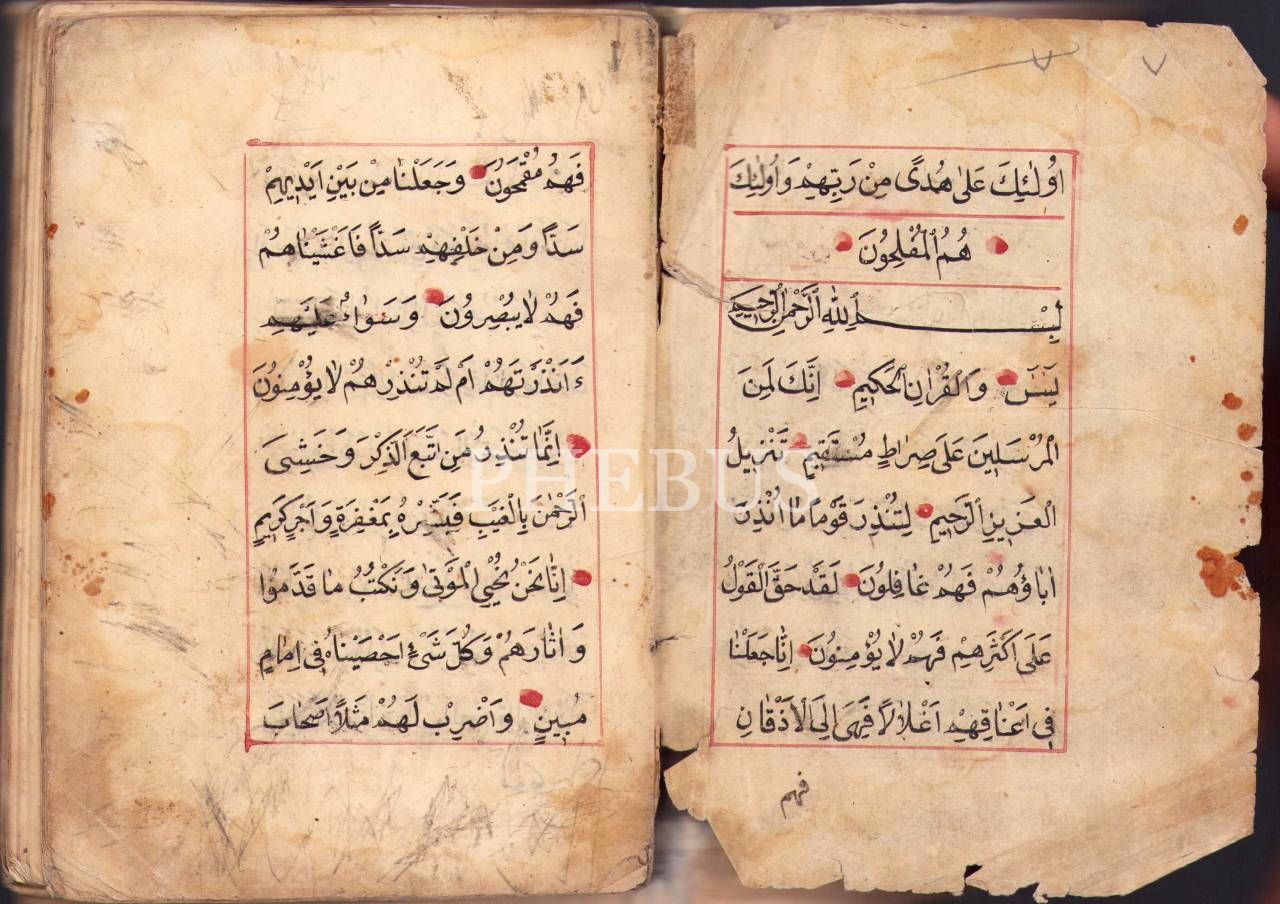 اُولٰئِكَ عَلٰى هُدًى مِنْ رَبِّهِمْ وَاُولٰئِكَ
هُمُ الْمُفْلِحُونَ
بِسْمِ اللّٰهِ الرَّحْمٰنِ الرَّحِيمِ
يٰسٓ وَالْقُرْاٰنِ الْحَكِيمِ اِنَّكَ لَمِنَ
الْمُرْسَلِينَ عَلٰى صِرَاطٍ مُسْتَقِيمٍ تَنْزِيلَ
الْعَزِيزِ الرَّحِيمِ لِتُنْذِرَ قَوْمًا مَا اُنْذِرَ
اٰبَاؤُهُمْ فَهُمْ غَافِلُونَ لَقَدْ حَقَّ الْقَوْلُ
عَلٰى اَكْثَرِهِمْ فَهُمْ لَا يُؤْمِنُونَ اِنَّا جَعَلْنَا
فِى اَعْنَاقِهِمْ اَغْلَالًا فَهِىَ اِلَى الْاَذْقَانِ
فهم
فَهُمْ مُقْمَحُونَ وَجَعَلْنَا مِنْ بَيْنِ اَيْدِيهِمْ
سَدًّا وَمِنْ خَلْفِهِمْ سَدًّا فَاَغْشَيْنَاهُمْ
فَهُمْ لَا يُبْصِرُونَ وَسَوَاءٌ عَلَيْهِمْ
ءَاَنْذَرْتَهُمْ اَمْ لَمْ تُنْذِرْهُمْ لَا يُؤْمِنُونَ
اِنَّمَا تُنْذِرُ مَنِ اتَّبَعَ الذِّكْرَ وَخَشِىَ
الرَّحْمٰنَ بِالْغَيْبِ فَبَشِّرْهُ بِمَغْفِرَةٍ وَاَجْرٍ كَرِيمٍ
اِنَّا نَحْنُ نُحْيِي الْمَوْتٰى وَنَكْتُبُ مَا قَدَّمُوا
وَاٰثَارَهُمْ وَكُلَّ شَىْءٍ اَحْصَيْنَاهُ فِى اِمَامٍ
مُبِينٍ وَاضْرِبْ لَهُمْ مَثَلًا اَصْحَابَ
PHEBUS